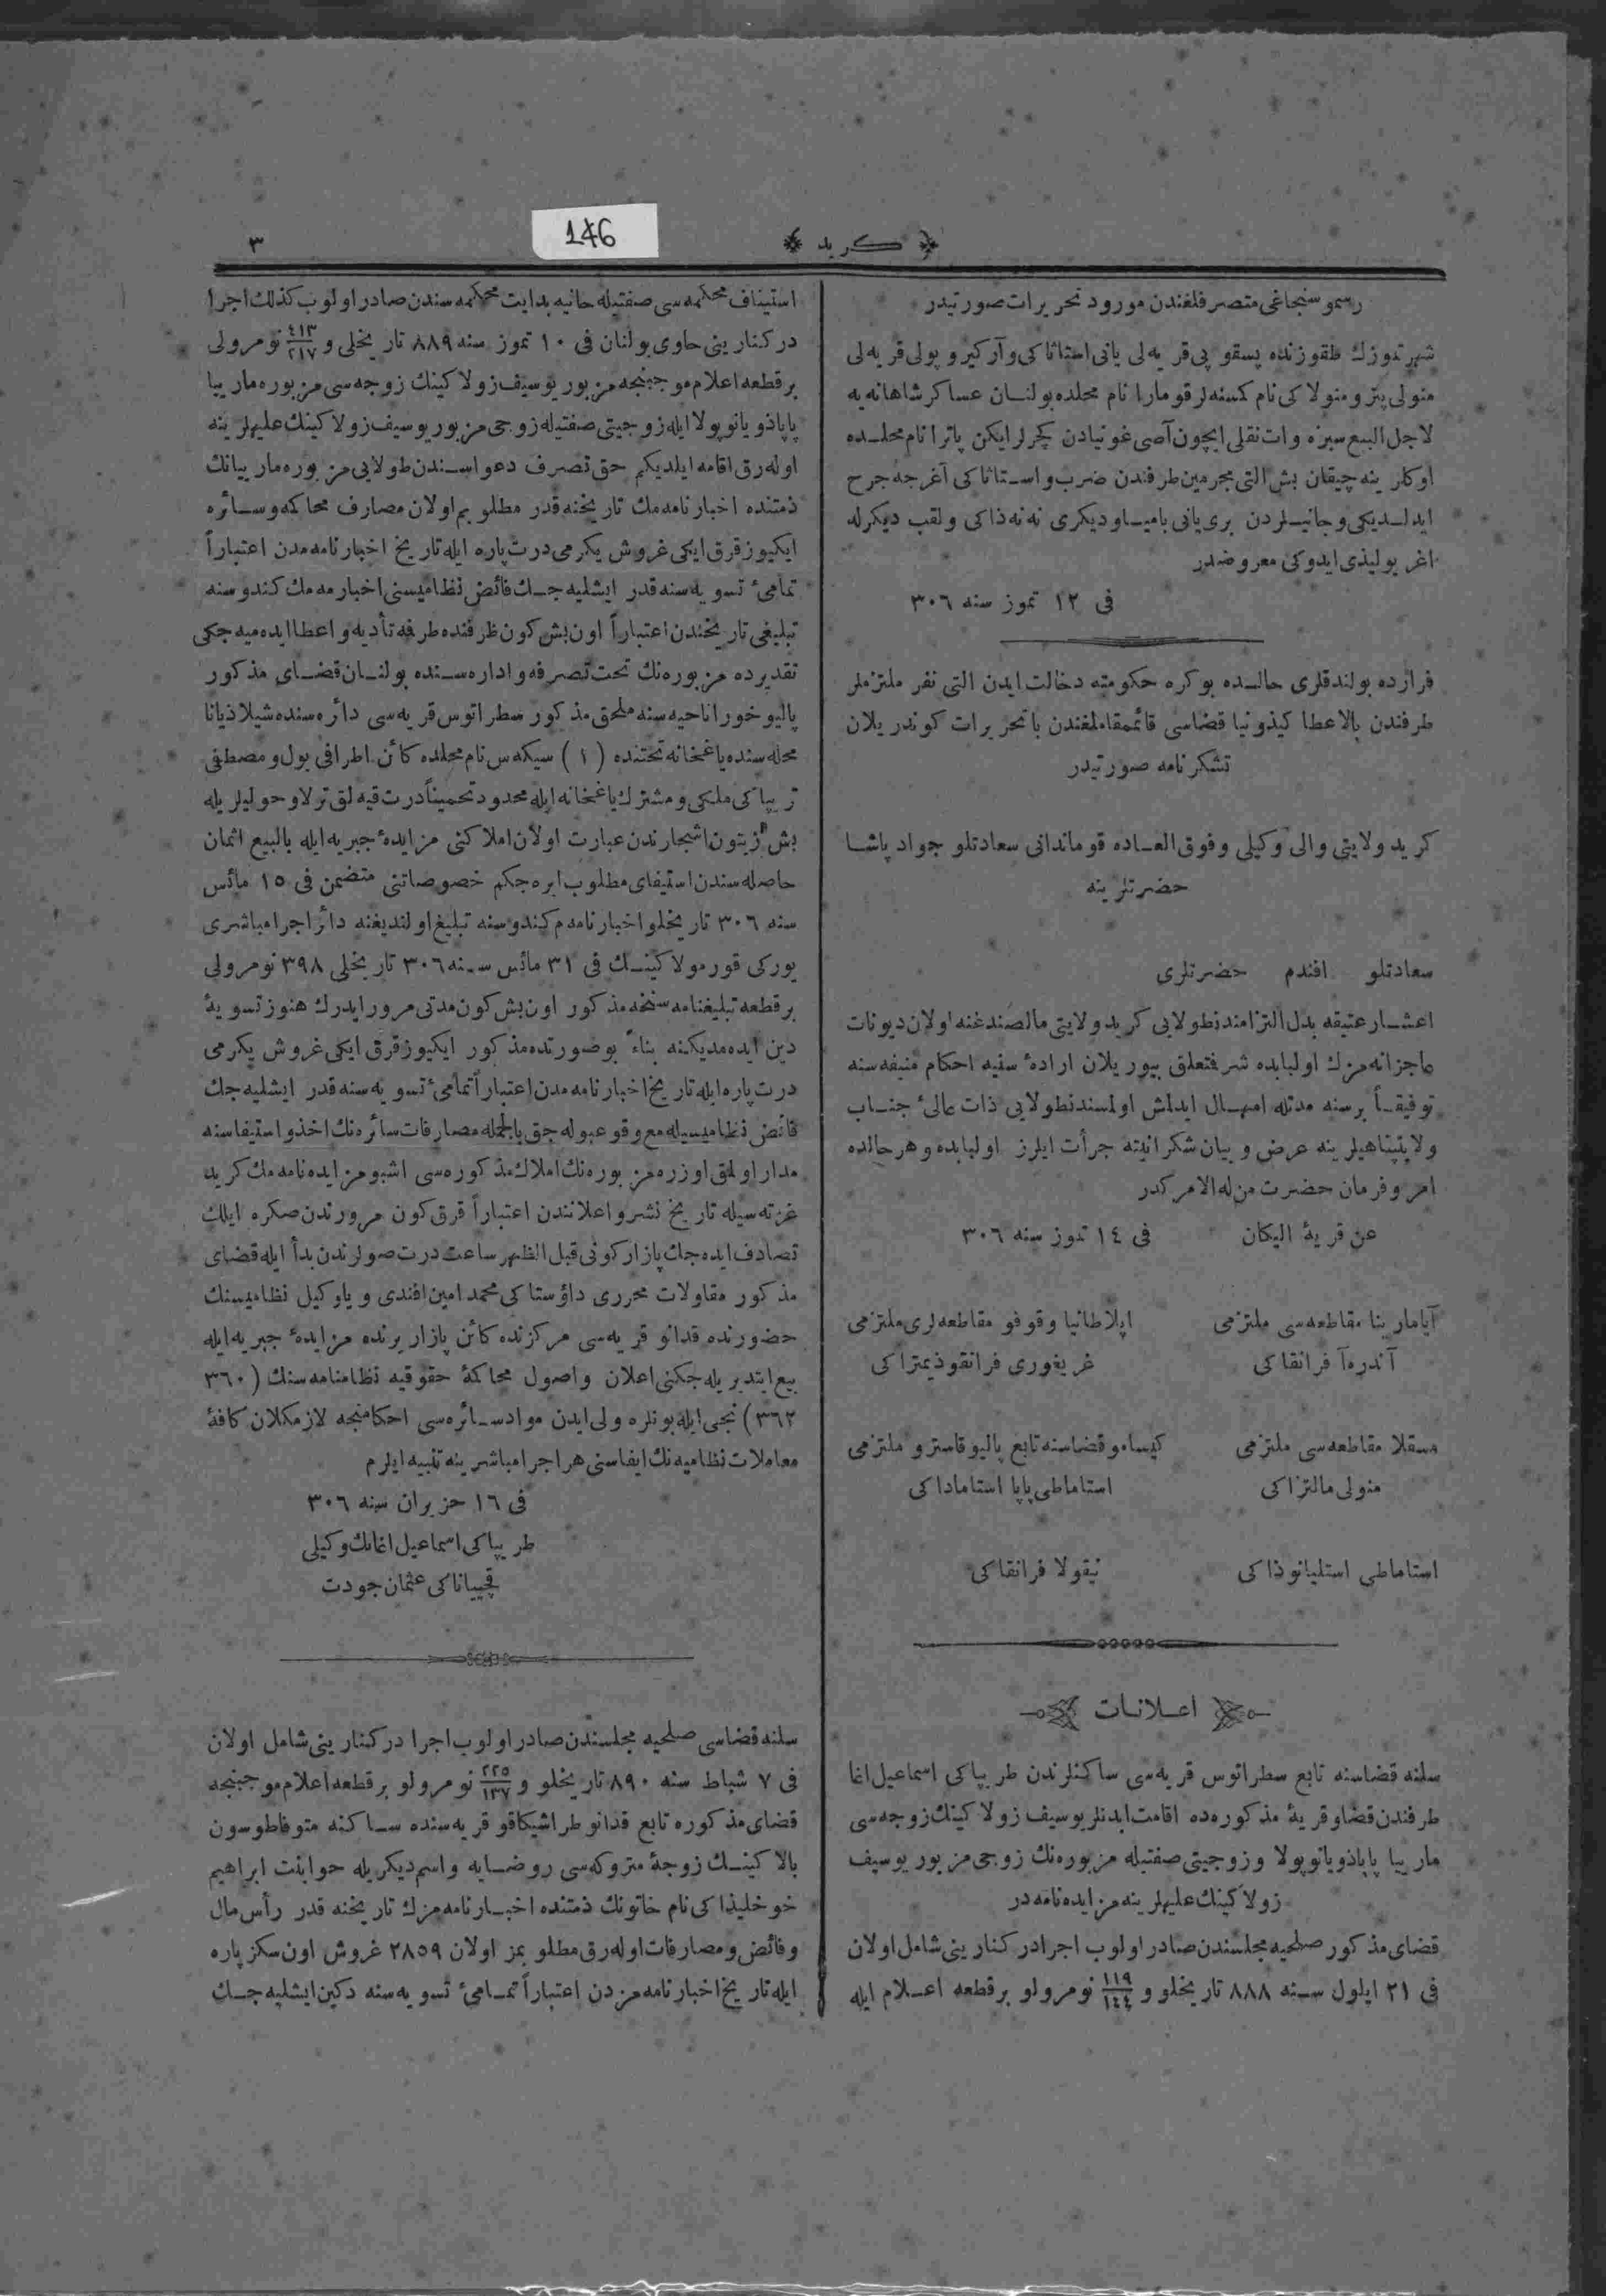 146
﴿ كريد ﴾
٣
رسمو سنجاغى متصرفلغندن مورود تحريرات صورتيدر
شهر تموزك طقوزنده پسقو پى قريه لى يانى استاثاكى و آركيرو پولى قريه لى
منولى پترو منولاكى نام كمسنه لر قومارا نام محلده بولنــان عساكر شاهانه يه
لاجل البيع سبزه وات نقلى ايچون آصى غونيادن كچرلر ايكن پاترا نام محلــده
اوكلرينه چيقان بش التى مجرمين طرفندن ضرب و اســتاثاكى آغرجه جرح
ايدلــديكى و جانيــلردن برى يانى باميــاو ديكرى نه نه ذاكى ولقب ديكرله
اغر يوليذى ايدوكى معروضدر
فى ١٢ تموز سنه ٣٠٦
فرارده بولندقلرى حالــده بوكره حكومته دخالت ايدن التى نفر ملتزملر
طرفندن بالاعطا كيذونيا قضاسى قائممقاملغندن با تحريرات كوندريلان
تشكرنامه صورتيدر
كريد ولايتى والى وكيلى وفوق العــاده قومانداني سعادتلو جواد پاشــا
حضرتلرينه
سعادتلو افندم حضرتلرى
اعشــار عتيقه بدل التزامندنطولايى كريد ولايتى مالصندغنه اولان ديونات
عاجزانه مزك اولبابده شرفتعلق بيوريلان ارادۀ سنيه احكام منيفه سنه
توفيقــاً برسنه مدتله امهــال ايدلمش اولمسندنطولايى ذات عالئ جنــاب
ولايتپناهيلرينه عرض و بيان شكرانيته جرأت ايلرز اولبابده وهرحالده
امر وفرمان حضرت من له الامركدر
عن قريۀ اليكان فى ١٤ تموز سنه ٣٠٦
آيامارينا مقاطعه سى ملتزمى اپلاطانيا وقوفو مقاطعه لرى ملتزمى
آندره آ فرانقاكى غريغورى فرانقوذيمتراكى
مسقلا مقاطعه سى ملتزمى كيسامو قضاسنه تابع پاليوقاسترو ملتزمى
منولى مالتزاكى استاماطى پاپا استاماداكى
استاماطى استليانوذاكى نيقولا فرانقاكى
اعــلانــات
سلنه قضاسنه تابع سطراتوس قريه سى ساكنلرندن طريپاكى اسماعيل اغا
طرفندن قضاو قريۀ مذكوره ده اقامت ايدنلر يوسيف زولاكينك زوجه سى
ماريا پاپاذويانوپولا و زوجيتى صفتيله مزبوره نك زوجى مزبور يوسيف
زولاكينك عليهلرينه مزايده نامه در
قضاى مذكور صلحيه مجلسندن صادر اولوب اجرا دركنارينى شامل اولان
فى ٢١ ايلول ســنه ٨٨٨ تاريخلو و ١١٩/١٤٤ نومرولو برقطعه اعــلام ايله
استيناف محكمه سى صفتيله حانيه بدايت محكمه سندن صادر اولوب كذلك اجرا
دركنارينى حاوى بولنان فى ١٠ تموز سنه ٨٨٩ تاريخلى و ٤١٣/٢١٧ نومرولى
برقطعه اعلام موجبنجه مزبور يوسيف زولاكينك زوجه سى مزبوره ماريا
پاپاذويانوپولا ايله زوجيتى صفتيله زوجى مزبور يوسيف زولاكينك عليهلرينه
اوله رق اقامه ايلديكم حق تصرف دعواســندن طولايى مزبوره ماريانك
ذمتنده اخبارنامه مك تاريخنه قدر مطلوبم اولان مصارف محاكمه وســائره
ايكيوز قرق ايكى غروش يكرمى درت پاره ايله تاريخ اخبارنامه مدن اعتباراً
تمامئ تسويه سنه قدر ايشليه جــك فائض نظاميسنى اخبارمه مك كندوسنه
تبليغى تاريخندن اعتباراً اون بش كون ظرفنده طرفه تأديه و اعطا ايده ميه جكى
تقديرده مزبوره نك تحت تصرفه و اداره ســنده بولنــان قضــاى مذكور
پاليوخورا ناحيه سنه ملحق مذكور سطراتوس قريه سى دائره سنده شيلاذيانا
محله سنده ياغخانه تحتنده (١) سيكه س نام محلده كائن اطرافى يول و مصطفى
تريپاكى ملكى و مشترك ياغخانه ايله محدود تخميناً درت قيه لق ترلا و حوليلريله
بش زيتون اشجارندن عبارت اولان املاكنى مزايدۀ جبريه ايله بالبيع اثمان
حاصله سندن استيفاى مطلوب ايره جكم خصوصاتنى متضمن فى ١٥ مائس
سنه ٣٠٦ تاريخلو اخبارنامه م كندوسنه تبليغ اولنديغنه دائر اجرا مباشرى
يوركى قورمولاكينــك فى ٣١ مائس ســنه ٣٠٦ تاريخلى ٣٩٨ نومرولى
برقطعه تبليغنامه سنخه مذكور اون بش كون مدتى مرور ايدرك هنوز تسويۀ
دين ايده مديكنه بناءً بوصورتده مذكور ايكيوز قرق ايكى غروش يكرمى
درت پاره ايله تاريخ اخبارنامه مدن اعتباراً تمامئ تسويه سنه قدر ايشليه جك
فائض نظاميسيله مع وقوعبوله جق بالجمله مصارفات سائره نك اخذ و استيفاسنه
مدار اولمق اوزره مزبوره نك املاك مذكوره سى اشبو مزايده نامه مك كريد
غزته سيله تاريخ نشر و اعلانندن اعتباراً قرق كون مرورندن صكره ايلك
تصادف ايده جك پازار كونى قبل الظهر ساعت درت صولرندن بدأ ايله قضاى
مذكور مقاولات محررى داؤستاكى محمد امين افندى و ياوكيل نظاميسنك
حضورنده قدانو قريه سى مركزنده كائن پازار يرنده مزايدۀ جبريه ايله
بيع ايتديريله جكنى اعلان و اصول محاكمۀ حقوقيه نظامنامه سنك (٣٦٠
٣٦٢) نجى ايله بونلره ولى ايدن مواد ســائره سى احكامنجه لازمكلان كافۀ
معاملات نظاميه نك ايفاسنى هر اجرا مباشرينه تنبيه ايلرم
فى ١٦ حزيران سنه ٣٠٦
طريپاكى اسماعيل اغانك وكيلى
قچيباناكى عثمان جودت
سلنه قضاسى صلحيه مجلسندن صادر اولوب اجرا دركنارينى شامل اولان
فى ٧ شباط سنه ٨٩٠ تاريخلو و ٢٢٥/١٣٧ نومرولو برقطعه اعلام موجبنجه
قضاى مذكوره تابع قدانو طراشيكاقو قريه سنده ســاكنه متوفا طوسون
بالاكينــك زوجۀ متروكه سى روضــايه و اسم ديكريله حوا بنت ابراهيم
خوخليذاكى نام خاتونك ذمتنده اخبــارنامه مزك تاريخنه قدر رأس مال
و فائض و مصارفات اوله رق مطلوبمز اولان ٢٨٥٩ غروش اون سكز پاره
ايله تاريخ اخبارنامه مزدن اعتباراً تمــامئ تسويه سنه دكين ايشليه جــك